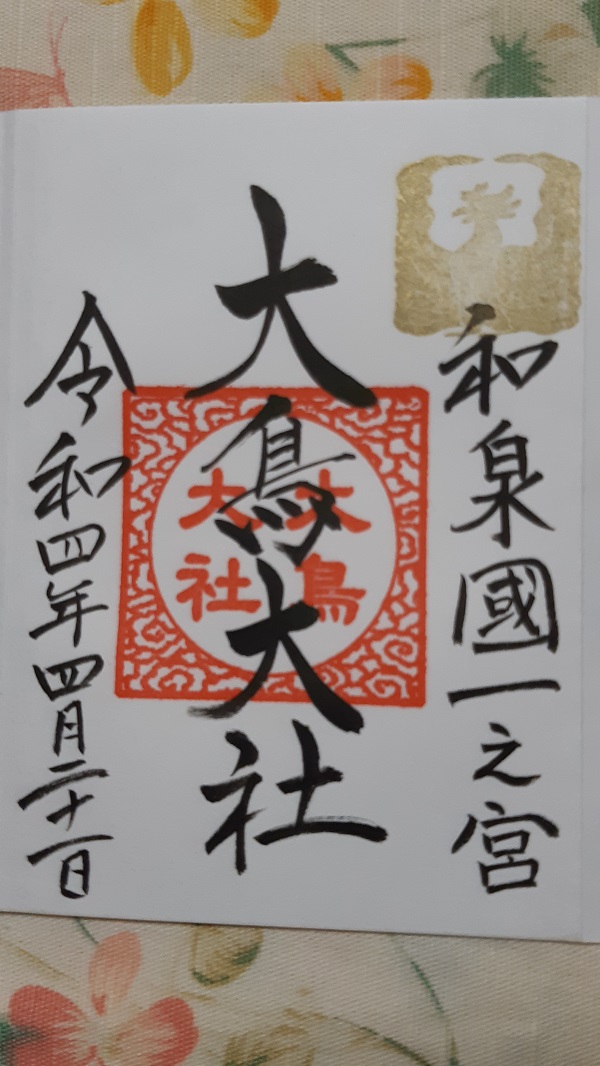 和泉國一之宮
大鳥大社
大鳥
大社
令和四年四月二十一日